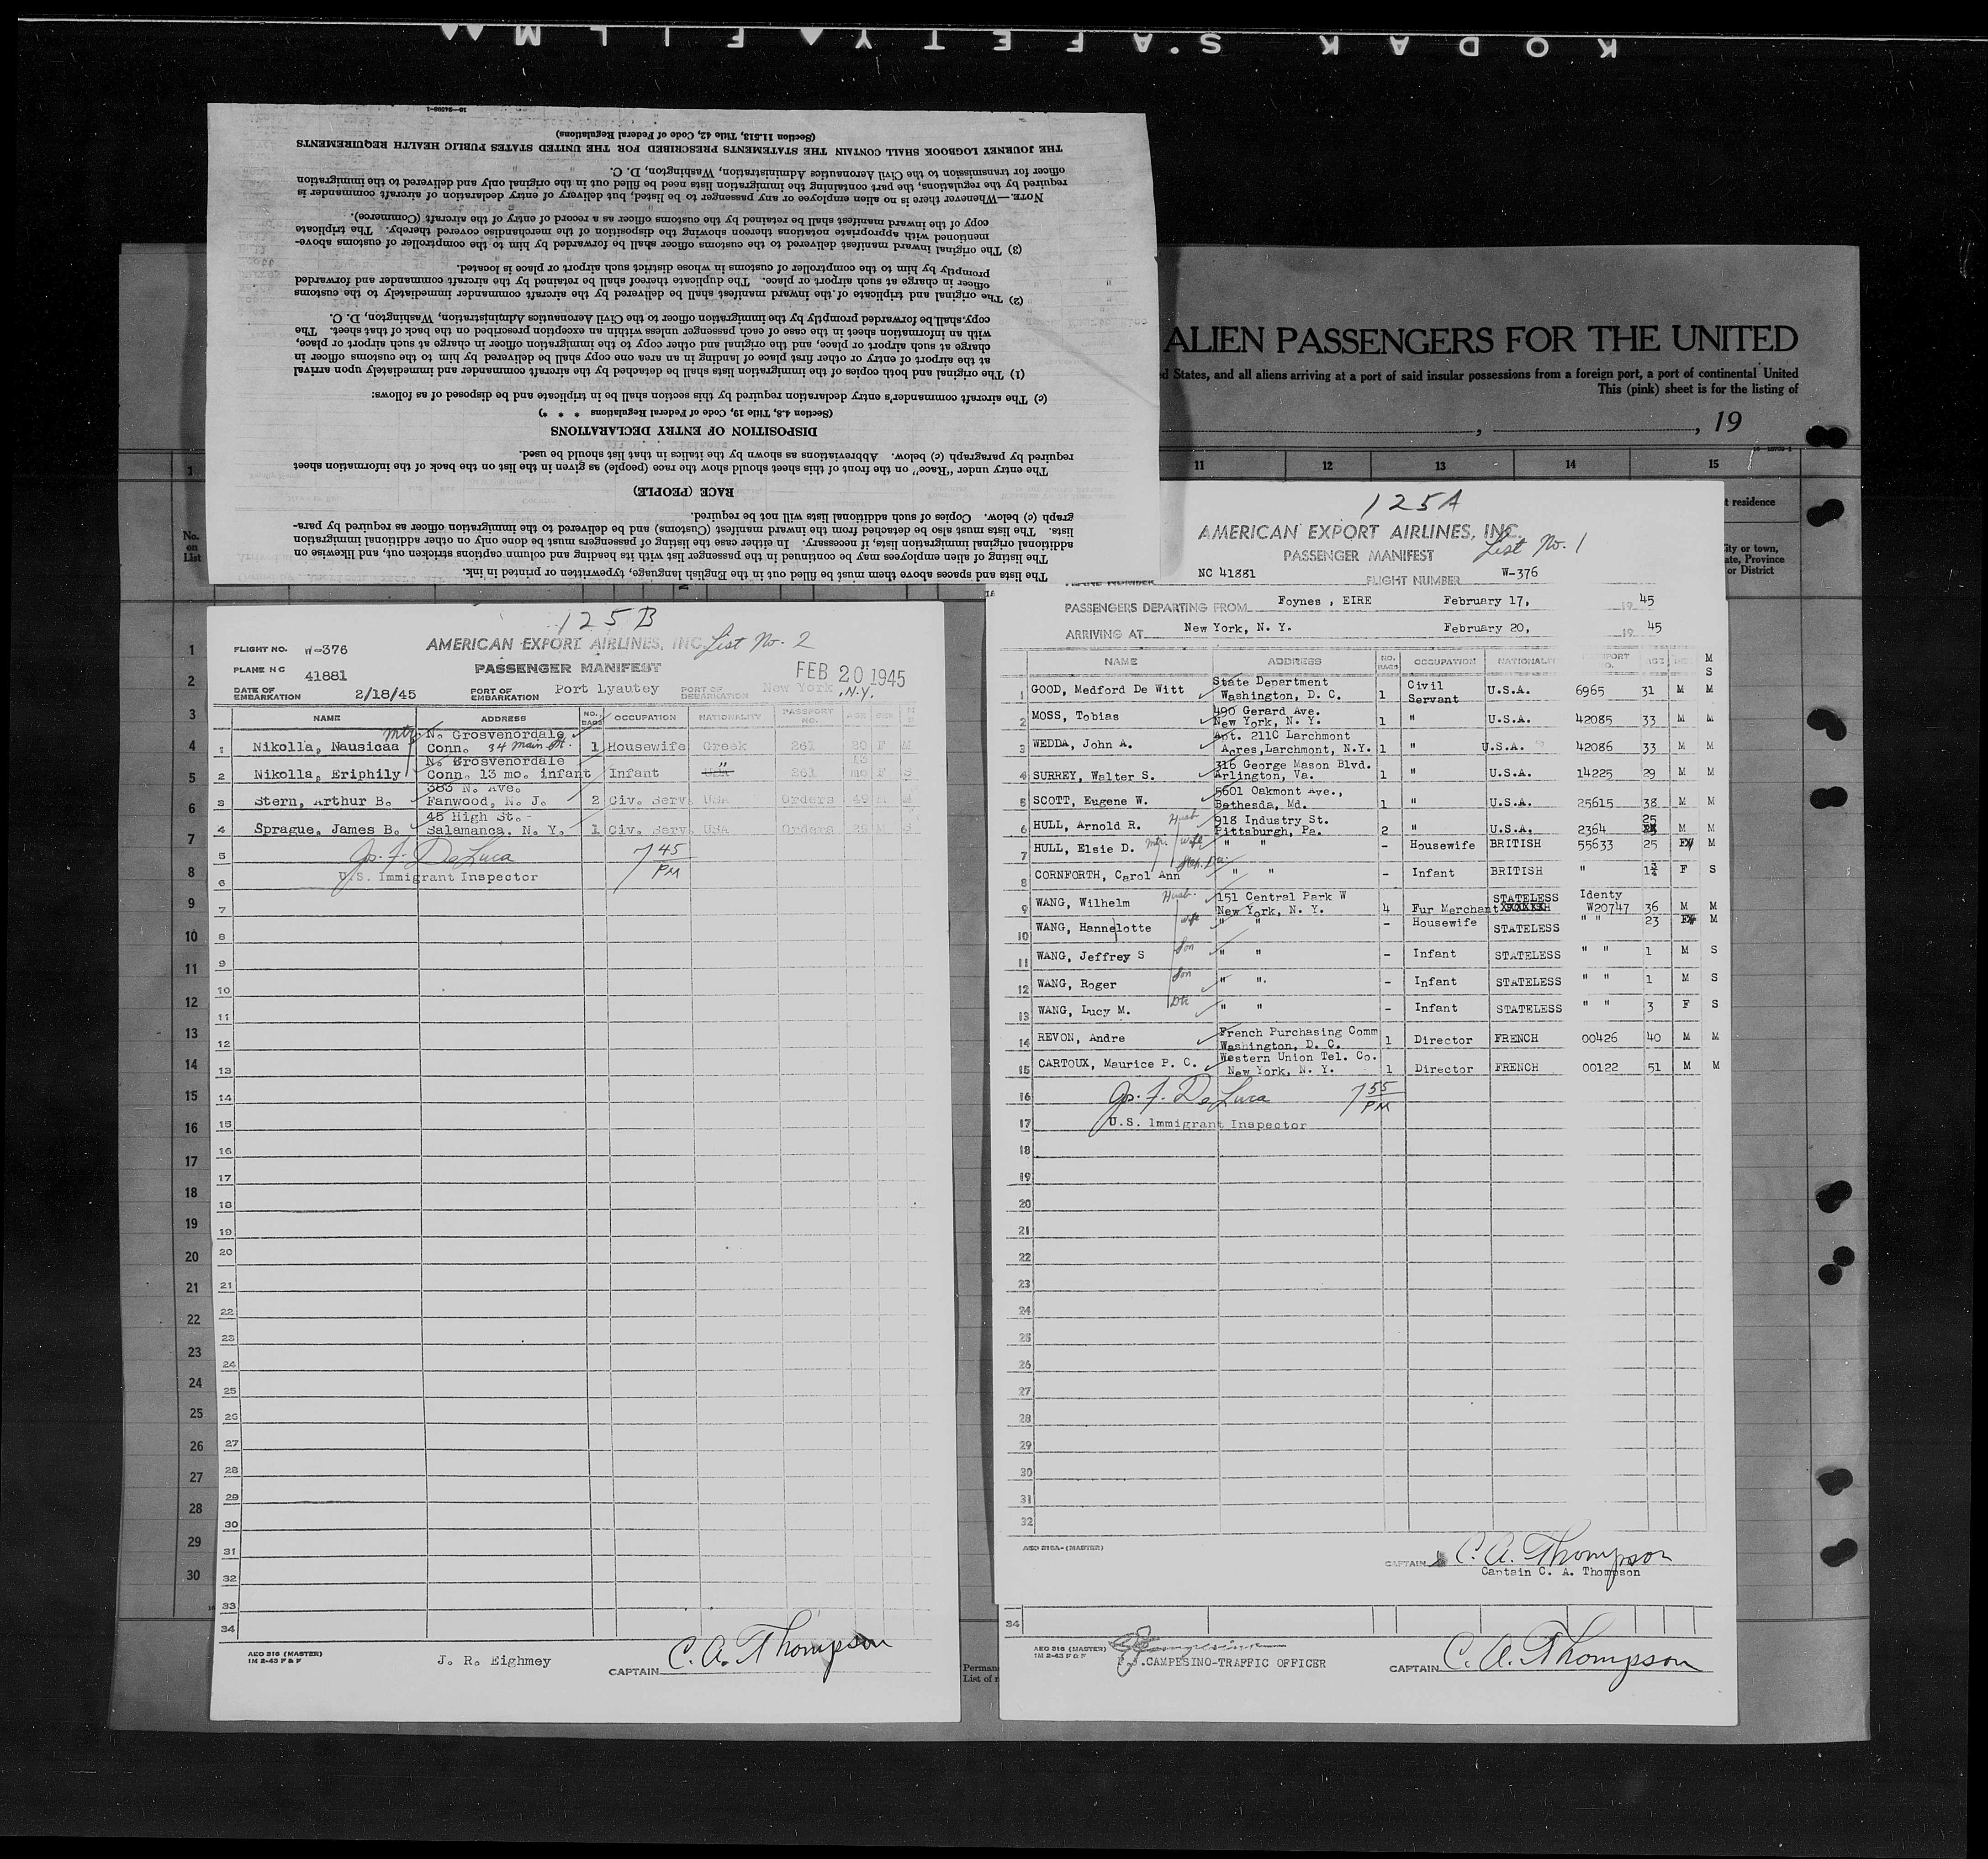 KODAK S·AFETY FILM
16—24599-1
The lists and spaces above them must be filled out in the English language, typewritten or printed in ink.
The listing of alien employees may be continued in the passenger list with its heading and column captions stricken out, and likewise on
additional original immigration lists, if necessary. In either case the listing of passengers must be done only on other additional immigration
lists. The lists must also be detached from the inward manifest (Customs) and be delivered to the immigration officer as required by para-
graph (c) below. Copies of such additional lists will not be required.
RACE (PEOPLE)
The entry under "Race" on the front of this sheet should show the race (people) as given in the list on the back of the information sheet
required by paragraph (c) below. Abbreviations as shown by the italics in that list should be used.
DISPOSITION OF ENTRY DECLARATIONS
(Section 4.8, Title 19, Code of Federal Regulations * * *)
(c) The aircraft commander's entry declaration required by this section shall be in triplicate and be disposed of as follows:
(1) The original and both copies of the immigration lists shall be detached by the aircraft commander and immediately upon arrival
at the airport of entry or other first place of landing in an area one copy shall be delivered by him to the customs officer in
charge at such airport or place, and the original and other copy to the immigration officer in charge at such airport or place,
with an information sheet in the case of each passenger unless within an exception prescribed on the back of that sheet. The
copy shall be forwarded promptly by the immigration officer to the Civil Aeronautics Administration, Washington, D. C.
(2) The original and triplicate of the inward manifest shall be delivered by the aircraft commander immediately to the customs
officer in charge at such airport or place. The duplicate thereof shall be retained by the aircraft commander and forwarded
promptly by him to the comptroller of customs in whose district such airport or place is located.
(3) The original inward manifest delivered to the customs officer shall be forwarded by him to the comptroller of customs above-
mentioned with appropriate notations thereon showing the disposition of the merchandise covered thereby. The triplicate
copy of the inward manifest shall be retained by the customs officer as a record of entry of the aircraft (Commerce).
NOTE.—Whenever there is no alien employee or any passenger to be listed, but delivery of entry declaration of aircraft commander is
required by the regulations, the part containing the immigration lists need be filled out in the original only and delivered to the immigration
officer for transmission to the Civil Aeronautics Administration, Washington, D. C.
THE JOURNEY LOGBOOK SHALL CONTAIN THE STATEMENTS PRESCRIBED FOR THE UNITED STATES PUBLIC HEALTH REQUIREMENTS
(Section 11.513, Title 42, Code of Federal Regulations)
ALIEN PASSENGERS FOR THE UNITED
d States, and all aliens arriving at a port of said insular possessions from a foreign port, a port of continental United
This (pink) sheet is for the listing of
, , 19
1 11 12 13 14 15
No. on List
t residence
ity or town,
ate, Province
or District
1
2
3
4
5
6
7
8
9
10
11
12
13
14
15
16
17
18
19
20
21
22
23
24
25
26
27
28
29
30
125B
AMERICAN EXPORT AIRLINES, INC. List No. 2
FLIGHT NO. W-376
PASSENGER MANIFEST
PLANE NC 41881
FEB 20 1945
DATE OF EMBARKATION 2/18/45 PORT OF EMBARKATION Port Lyautey PORT OF DEBARKATION New York, N.Y.
NAME ADDRESS NO. BAGS OCCUPATION NATIONALITY PASSPORT NO. AGE SEX M S
1 Nikolla, Nausicaa mtr. N. Grosvenordale Conn. 34 Main St. 1 Housewife Greek 261 20 F M
2 Nikolla, Eriphily N. Grosvenordale Conn. 13 mo. infant Infant USA " 261 13 mo F S
3 Stern, Arthur B. 383 N. Ave. Fanwood, N. J. 2 Civ. Serv. USA Orders 49 M M
4 Sprague, James B. 45 High St. - Salamanca, N. Y. 1 Civ. Serv. USA Orders 29 M S
5 Jos. F. DeLuca 7 45 PM
6 U.S. Immigrant Inspector
7
8
9
10
11
12
13
14
15
16
17
18
19
20
21
22
23
24
25
26
27
28
29
30
31
32
33
34
AEO 316 (MASTER)
1M 2-43 P & F
J. R. Eighmey
CAPTAIN C. A. Thompson
125A
AMERICAN EXPORT AIRLINES, INC.
List No. 1
PASSENGER MANIFEST
NC 41881 FLIGHT NUMBER W-376
PASSENGERS DEPARTING FROM Foynes, EIRE February 17, 19 45
ARRIVING AT New York, N. Y. February 20, 19 45
NAME ADDRESS NO. BAGS OCCUPATION NATIONALITY PASSPORT NO. AGE SEX M S
1 GOOD, Medford De Witt State Department Washington, D. C. 1 Civil Servant U.S.A. 6965 31 M M
2 MOSS, Tobias 490 Gerard Ave. New York, N. Y. 1 " U.S.A. 42085 33 M M
3 WEDDA, John A. Apt. 211C Larchmont Acres, Larchmont, N.Y. 1 " U.S.A. 42086 33 M M
4 SURREY, Walter S. 316 George Mason Blvd. Arlington, Va. 1 " U.S.A. 14225 29 M M
5 SCOTT, Eugene W. 5601 Oakmont Ave., Bethesda, Md. 1 " U.S.A. 25615 38 M M
6 HULL, Arnold R. Husb 918 Industry St. Pittsburgh, Pa. 2 " U.S.A. 2364 25 M M
7 HULL, Elsie D. mtr. wife " " - Housewife BRITISH 55633 25 F M
8 CORNFORTH, Carol Ann Step. Da. " " - Infant BRITISH " 1¾ F S
9 WANG, Wilhelm Husb. 151 Central Park W New York, N. Y. 4 Fur Merchant STATELESS Identy W20747 36 M M
10 WANG, Hannelotte wife " " - Housewife STATELESS " " 23 F M
11 WANG, Jeffrey S Son " " - Infant STATELESS " " 1 M S
12 WANG, Roger Son " " - Infant STATELESS " " 1 M S
13 WANG, Lucy M. Dtr " " - Infant STATELESS " " 3 F S
14 REVON, Andre French Purchasing Comm Washington, D. C. 1 Director FRENCH 00426 40 M M
15 CARTOUX, Maurice P. C. Western Union Tel. Co. New York, N. Y. 1 Director FRENCH 00122 51 M M
16 Jos. F. DeLuca 7 55 PM
17 U.S. Immigrant Inspector
18
19
20
21
22
23
24
25
26
27
28
29
30
31
32
AEO 316A- (MASTER)
CAPTAIN C. A. Thompson
Captain C. A. Thompson
34
AEO 316 (MASTER)
1M 2-43 P & F
CAMPESINO-TRAFFIC OFFICER
CAPTAIN C. A. Thompson
Perman
List of r